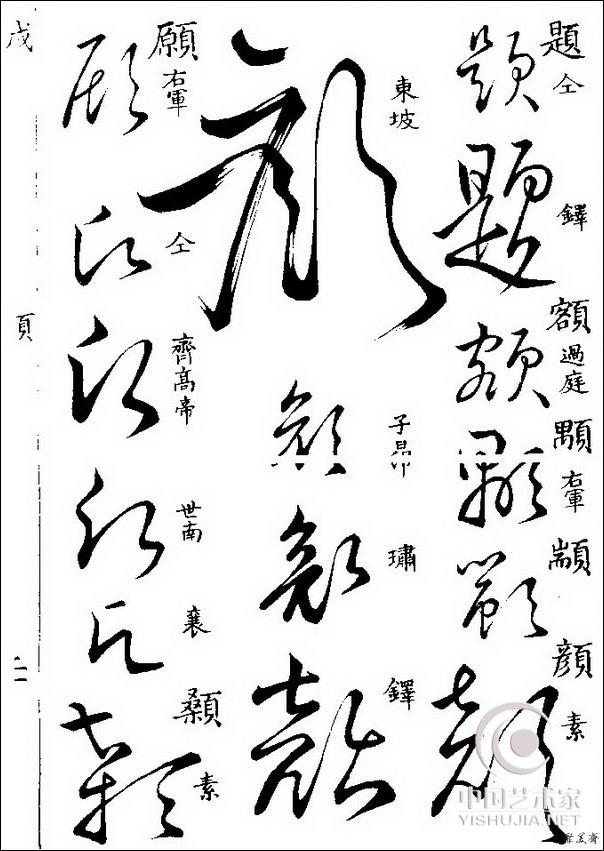 題 仝
題 鐸
額 過庭
顆 右軍
顓
顏 素
東坡
子昂
璛
鐸
願 右軍
仝
齊高帝
世南
襄
顙 素
戌
頁
中国艺术家
YISHUJIA.NET